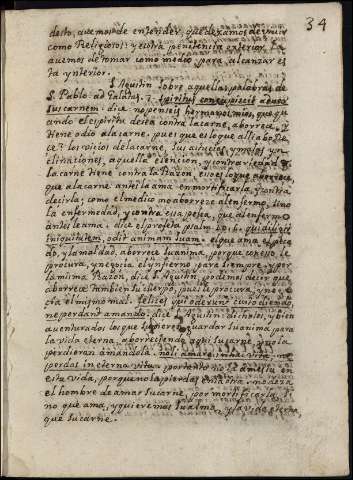 34
desto, avemos de entender, que dexamos de vivir
como Religiosos: y estra penitencia exterior, la
avemos de tomar como medio para alcanzar es
ta ynterior.
S. Agustin sobre aquellas palabras de
S. Pablo ad Galatas. 5. Spiritus concupiscit adver
sus carnem. dice no penseis hermanos mios, que qu
ando el espiritu desea contra la carne, aborrece, y
tiene odio a la carne. pues que es lo que alli aborre
ce? los vicios de la carne, sus astucias, y malos yn
clinaciones, aquella
la carne tiene contra la Razon, esso es lo que aborrece
que a la carne antes la ama en mortificarla, y contra
decirla; como el medico no aborrece al enfermo, sino
la enfermedad, y contra essa pelea, que al enfermo
antes le ama. dice el profeta psalm. 10. 6. qui diligit
iniquitatem, odit animam suam. el que ama el peca
do, y la maldad, aborrece su anima, porque con esso le
procura, y negocia el infierno para siempre. y por
la misma Razon, dice S. Agustin, podemos decir que
aborrece tambien su cuerpo, pues le procura, y nego
cia el mismo mal. felices qui oderunt custodiendo,
ne perdant amando. dice S. Agustin: dichosos, y bien
aventurados los que supieren guardar su anima para
la vida eterna, aborreciendo aqui su carne, y no la
perdieran amandola. noli amare in hac vita, ne
perdas in eterna vita. por tanto no la ameis en
esta vida, porque no la pierdas en la otra. no dexa
el hombre de amar su carne, por mortificarla, si
no que ama, y quiere mas su alma, y la vida eterna,
que su carne.